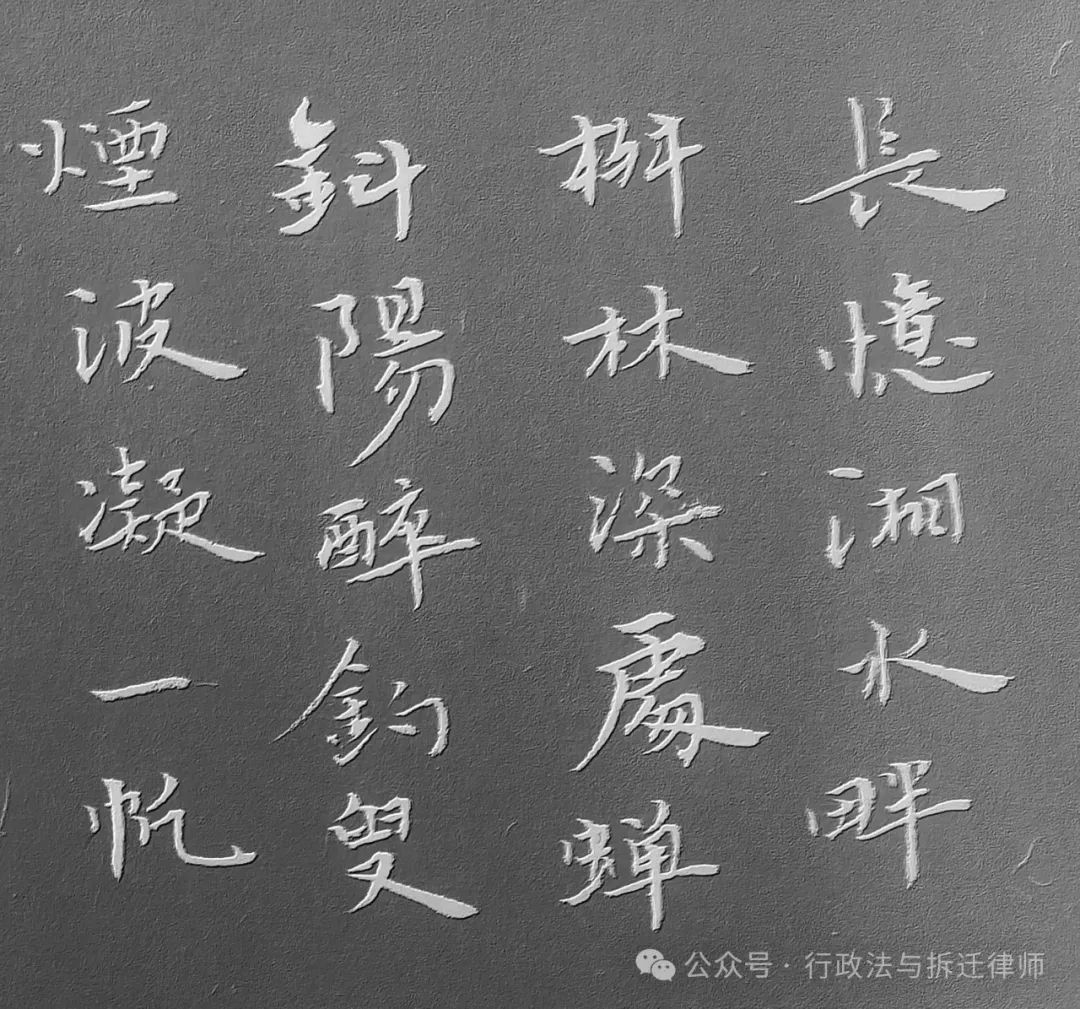 長憶湘水畔
槲林深處蝉
斜陽醉釣叟
煙波凝一帆
公众号·行政法与拆迁律师